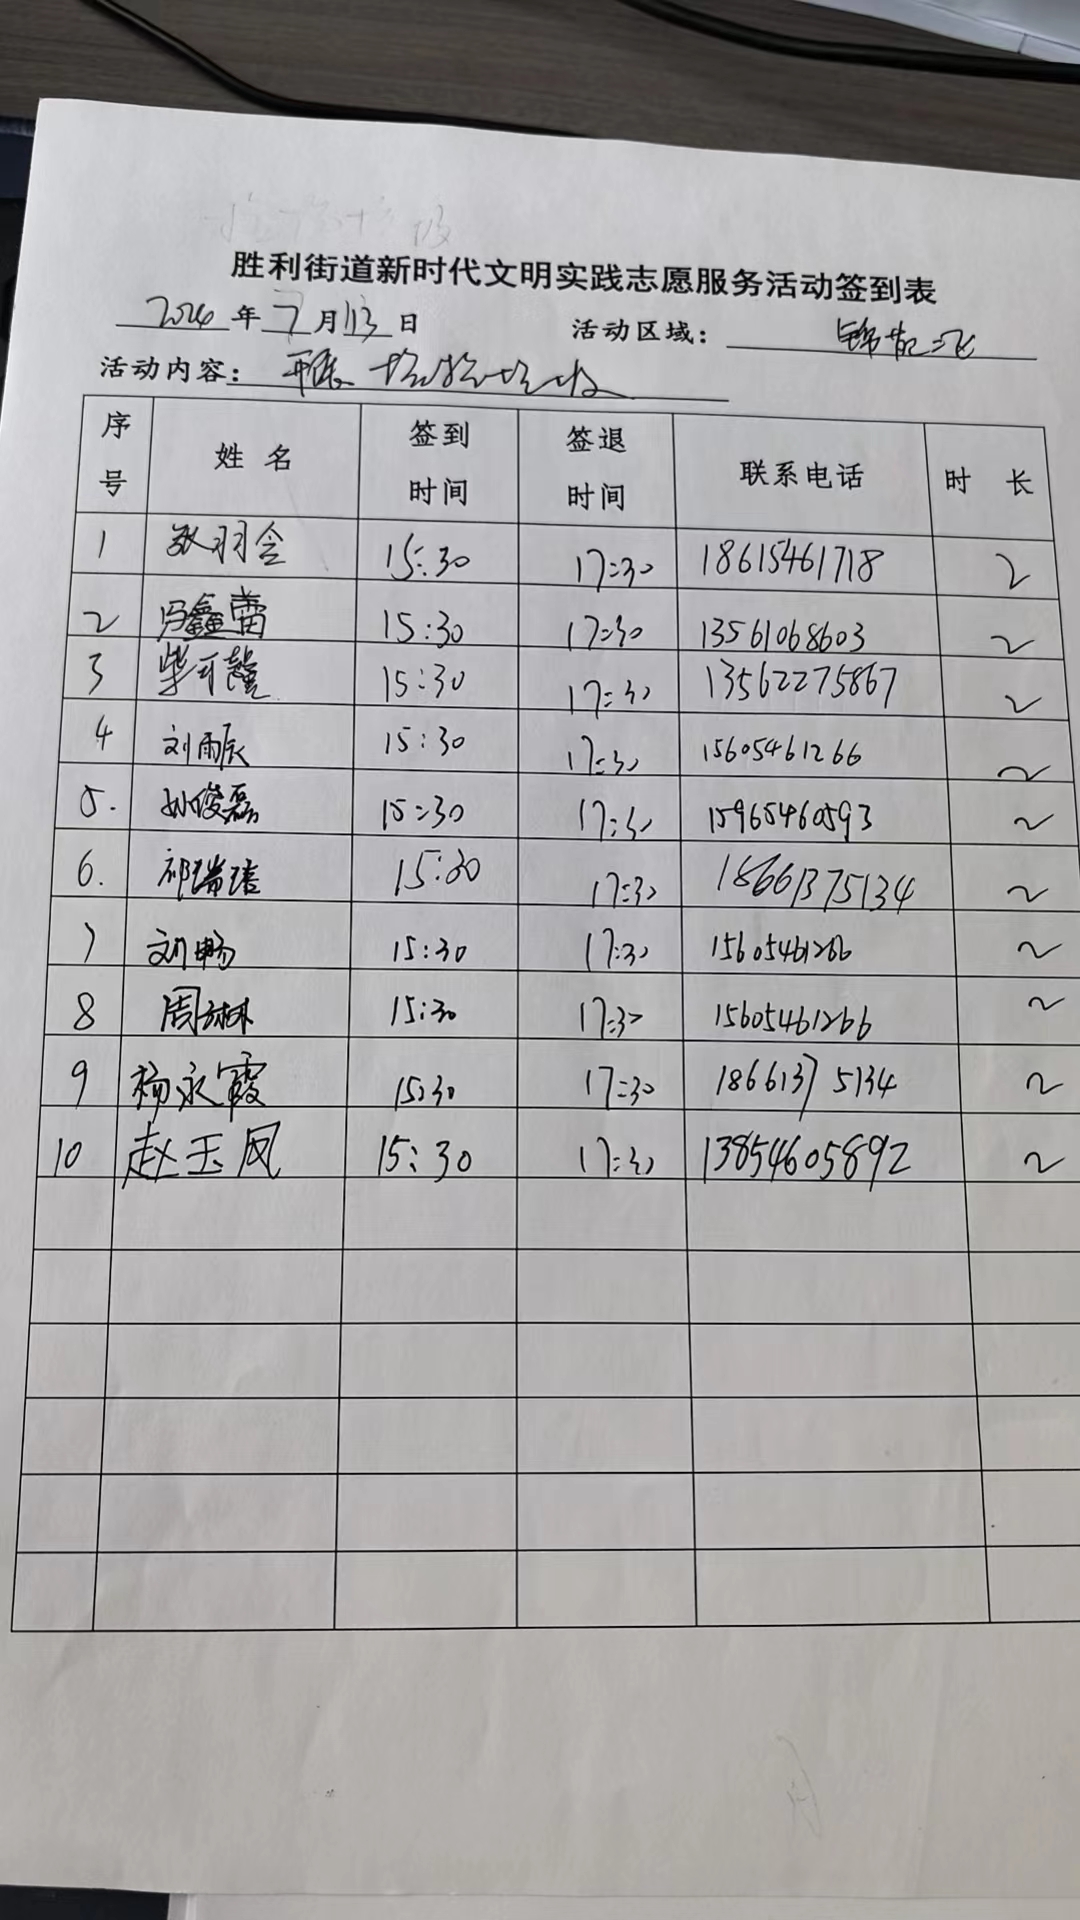 胜利街道新时代文明实践志愿服务活动签到表
2024 年 7 月 13 日 活动区域：
活动内容：开展
序号 姓 名 签到时间 签退时间 联系电话 时 长
1 张羽含 15:30 17:30 18615461718 2
2 冯鑫蕾 15:30 17:30 13561068603 2
3 柴可馨 15:30 17:30 13562275867 2
4 刘雨辰 15:30 17:30 15605461266 2
5. 孙俊磊 15:30 17:30 15965460593 2
6. 祁瑞琦 15:30 17:30 18661375134 2
7 刘畅 15:30 17:30 15605461266 2
8 周 15:30 17:30 15605461266 2
9 杨永霞 15:30 17:30 18661375134 2
10 赵玉凤 15:30 17:30 13854605892 2